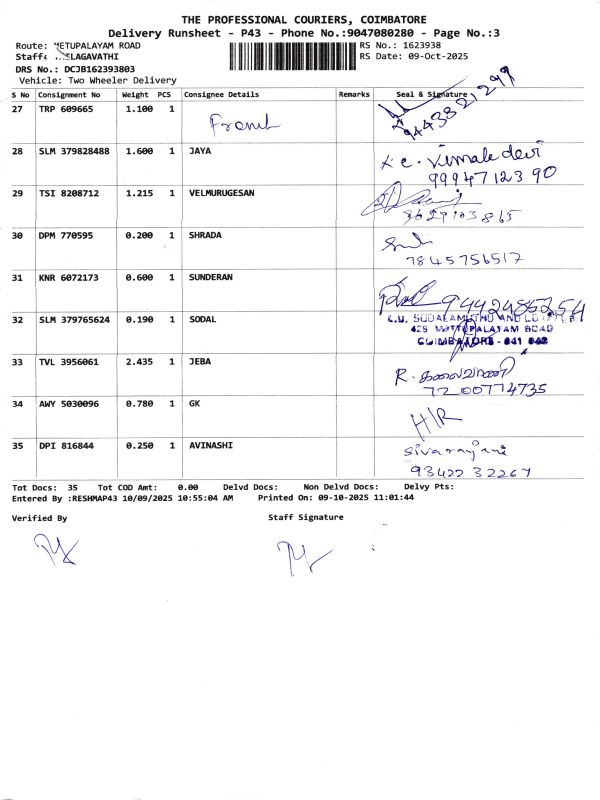 THE PROFESSIONAL COURIERS, COIMBATORE
Delivery Runsheet - P43 - Phone No.:9047080280 - Page No.:3
Route: METUPALAYAM ROAD
RS No.: 1623938
Staff: ELAGAVATHI
RS Date: 09-Oct-2025
DRS No.: DCJB162393803
Vehicle: Two Wheeler Delivery
S No Consignment No Weight PCS Consignee Details Remarks Seal & Signature
27 TRP 609665 1.100 1 9443821299
28 SLM 379828488 1.600 1 JAYA K C. Vimala devi
9994712390
29 TSI 8208712 1.215 1 VELMURUGESAN
3629103865
30 DPM 770595 0.200 1 SHRADA
7845756517
31 KNR 6072173 0.600 1 SUNDERAN 9442485254
32 SLM 379765624 0.190 1 SODAL
METTUPALAYAM ROAD
COIMBATORE - 641 043
33 TVL 3956061 2.435 1 JEBA R. கலைவாணி
7200774735
34 AWY 5030096 0.780 1 GK H/R
35 DPI 816844 0.250 1 AVINASHI Sivaranjini
9342232267
Tot Docs: 35 Tot COD Amt: 0.00 Delvd Docs: Non Delvd Docs: Delvy Pts:
Entered By :RESHMAP43 10/09/2025 10:55:04 AM Printed On: 09-10-2025 11:01:44
Verified By Staff Signature